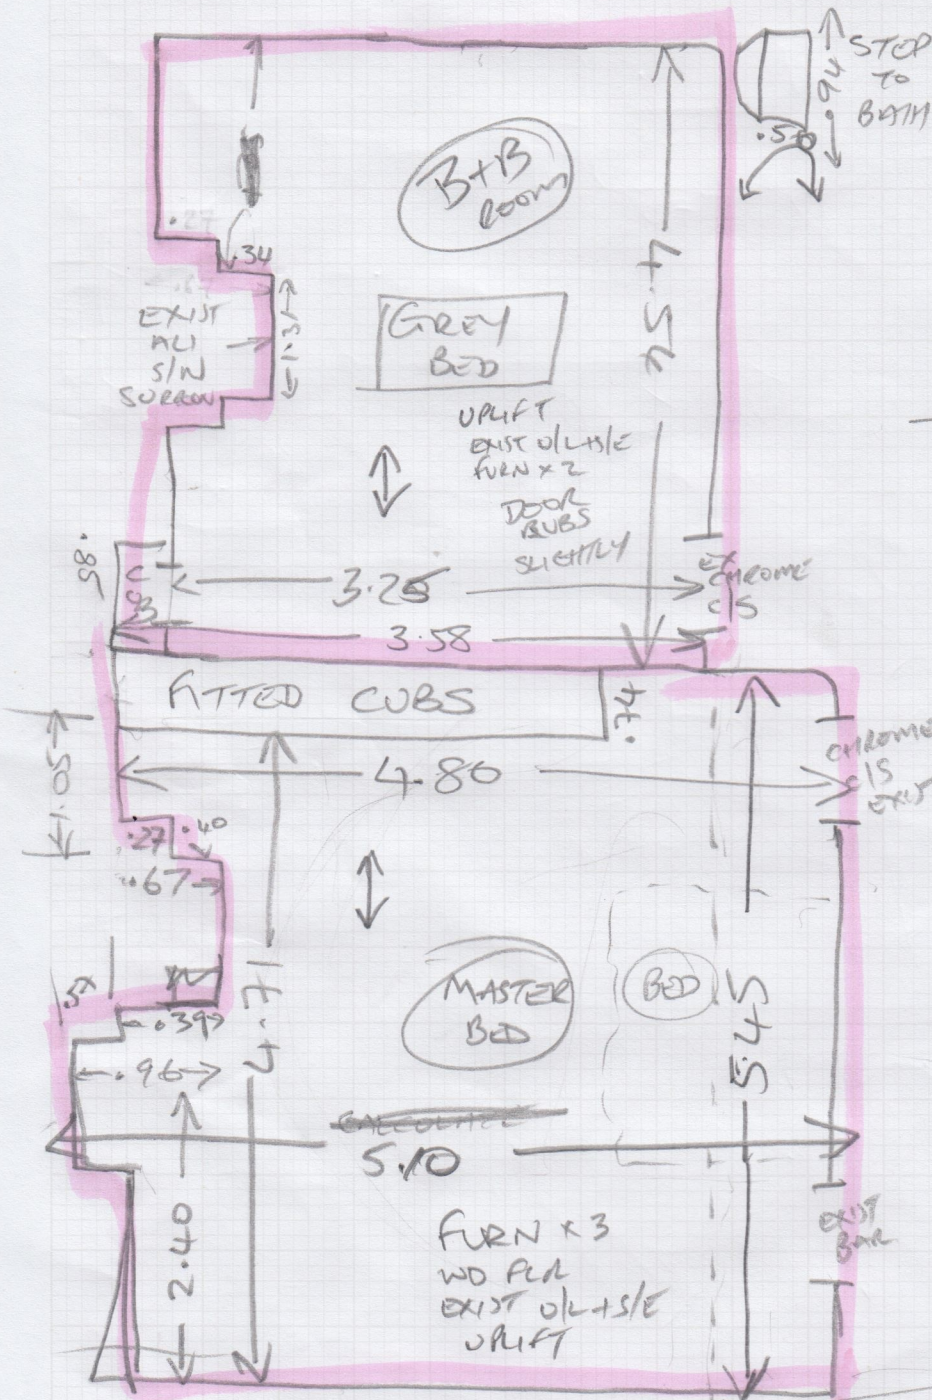 STEP
TO
BATH
.94
.50
B+B
ROOM
.27
.34
.67
EXIST
ALI
S/IN
SURROU
1.31
GREY
BED
4.54
UPLIFT
EXIST U/L+S/E
FURN x 2
DOOR
RUBS
SLIGHTLY
.85
3.25
EX
CHROME
C/S
3.58
FITTED CUBS
.74
1.05
4.80
CHROME
C/S
EXIST
.27
.40
.67
4.71
MASTER
BED
BED
5.45
.39
.96
5.10
2.40
FURN x 3
WD FLR
EXIST U/L+S/E
UPLIFT
EXIST
BAR